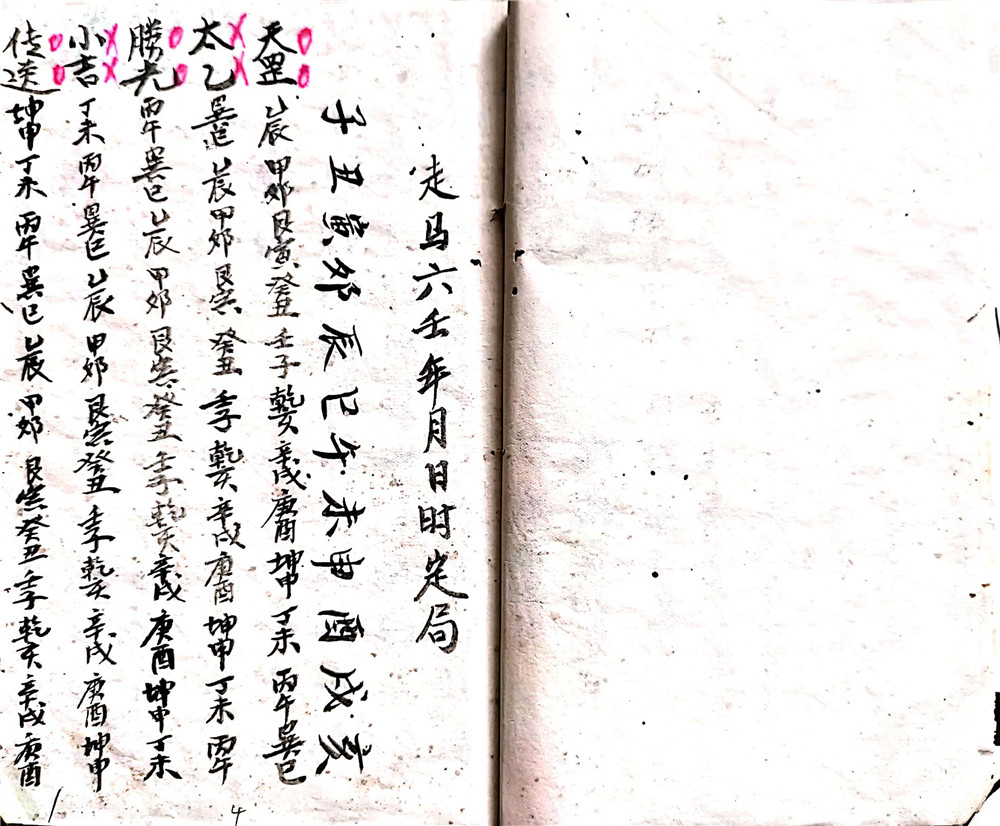 走马六壬年月日时定局
子丑寅卯辰巳午未申酉戌亥
天罡 乙辰 甲卯 艮寅 癸丑 壬子 乾亥 辛戌 庚酉 坤申 丁未 丙午 巽巳
太乙 巽巳 乙辰 甲卯 艮寅 癸丑 壬子 乾亥 辛戌 庚酉 坤申 丁未 丙午
勝光 丙午 巽巳 乙辰 甲卯 艮寅 癸丑 壬子 乾亥 辛戌 庚酉 坤申 丁未
小吉 丁未 丙午 巽巳 乙辰 甲卯 艮寅 癸丑 壬子 乾亥 辛戌 庚酉 坤申
传送 坤申 丁未 丙午 巽巳 乙辰 甲卯 艮寅 癸丑 壬子 乾亥 辛戌 庚酉
4
1